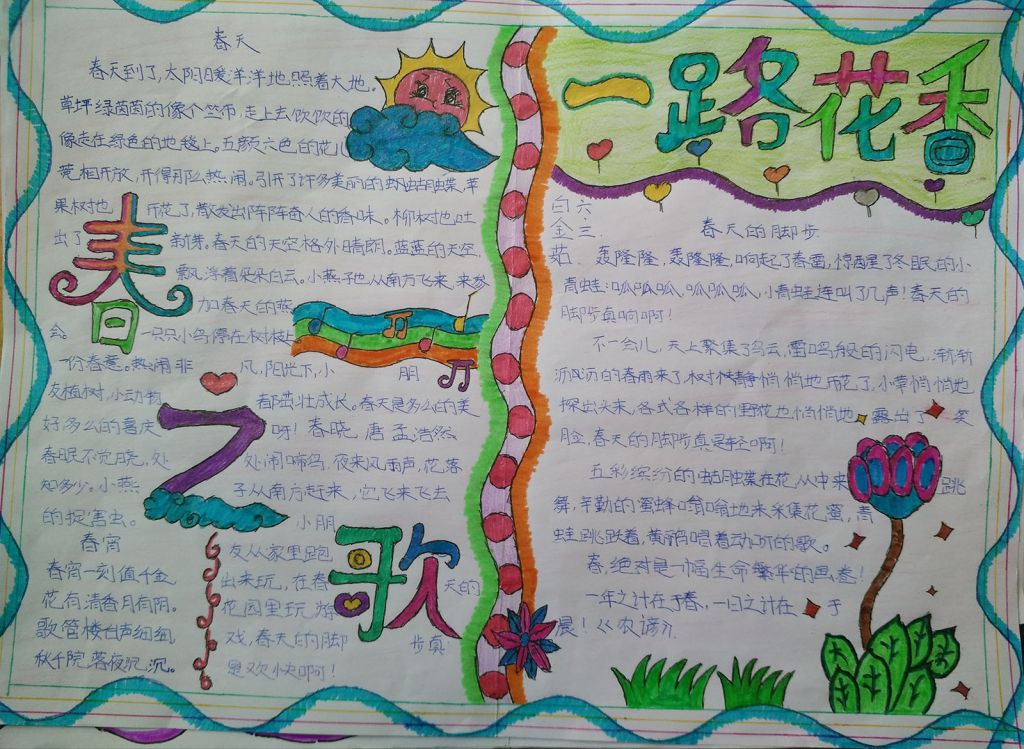 春天
春天到了,太阳暖洋洋地照着大地。
草坪绿茵茵的像个竺布,走上去饮饮的
像走在绿色的地毯上。五颜六色的花儿
竞相开放,开得那么热闹。引来了许多美丽的蝴蝶,苹
果树也 开花了,散发出阵阵奇人的香味。柳树也吐
出了 新芽。春天的天空格外晴朗。蓝蓝的天空,
飘浮着朵朵白云。小燕子也从南方飞来,来参
加春天的燕
会。 一只只小鸟停在树枝上
一份春意。热闹非 凡,阳光下,小 朋
友植树,小动物 都茁壮成长。春天是多么的美
好多么的喜庆 呀!春晓 唐 孟浩然
春眠不觉晓,处 处闻啼鸟,夜来风雨声,花落
知多少。小燕 子从南方赶来,它飞来飞去
的捉害虫。 小朋
春宵 友从家里跑
春宵一刻值千金 出来玩,在春 天的
花有清香月有阴。 花园里玩游
歌管楼台声细细, 戏,春天的脚 步真
秋千院落夜沉沉。 是欢快啊!
春日之歌
一路花香
六三. 白金茹.
春天的脚步
轰隆隆,轰隆隆,响起了春雷,惊醒了冬眠的小
青蛙:呱呱呱、呱呱呱,小青蛙连叫了几声!春天的
脚步真响啊!
不一会儿,天上聚集了乌云,雷鸣般的闪电,渐渐
沥沥的春雨来了,树木静悄悄地开花了,小草悄悄地
探出头来,各式各样的野花也悄悄地 露出了 笑
脸,春天的脚步真是轻啊!
五彩缤纷的蝴蝶在花丛中来 跳
舞,辛勤的蜜蜂嗡嗡地来采集花蜜,青
蛙跳跃着,黄鹂唱着动听的歌。
春,绝对是一幅生命繁华的画卷!
一年之计在于春,一日之计在 于
晨!《农谚》